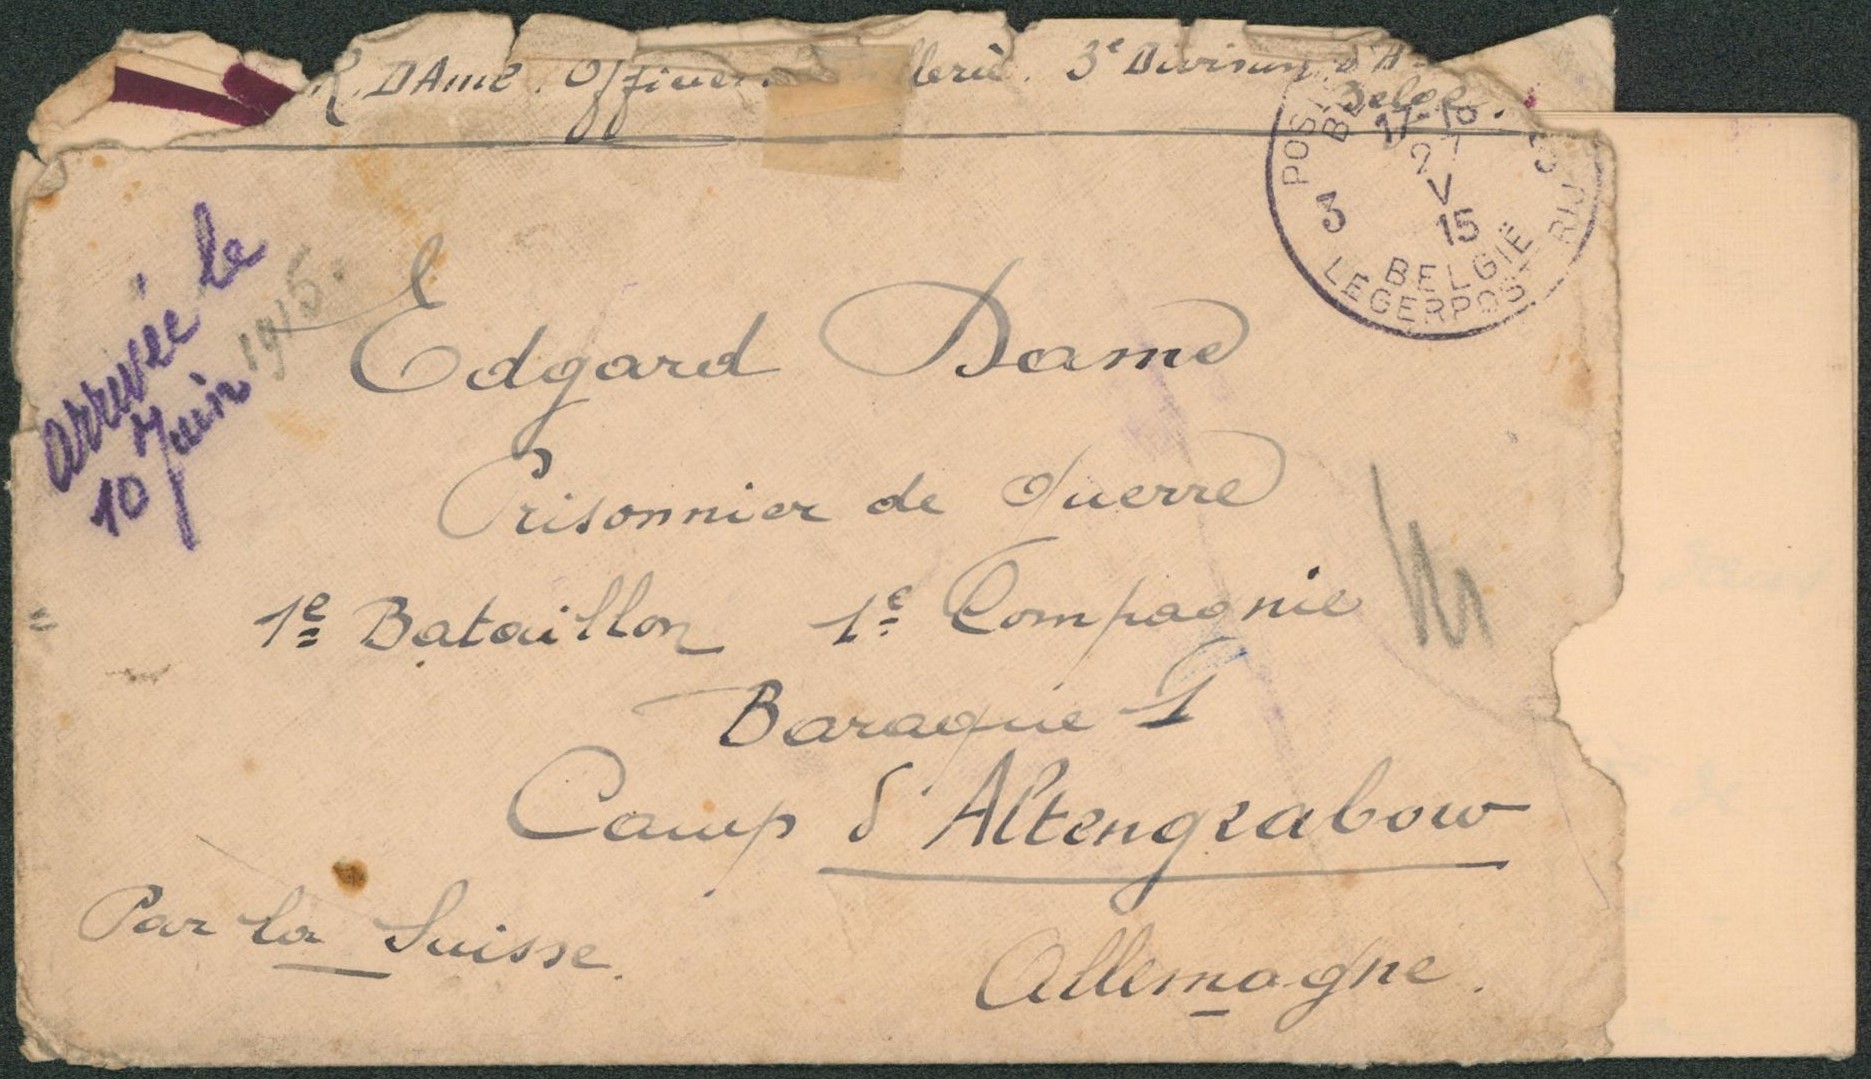 R. DAme Officier llerie. 3e Division d'A
Belge.
POS BE
17-18
2
V
15
3 3
BELGIË
LEGERPOS RIJ
arrivée le
10 Juin 1915.
Edgard Dame
Prisonnier de Guerre
1e Bataillon 1e Compagnie
Baraque 1
Camp d'Altengrabow
Par la Suisse.
Allemagne.